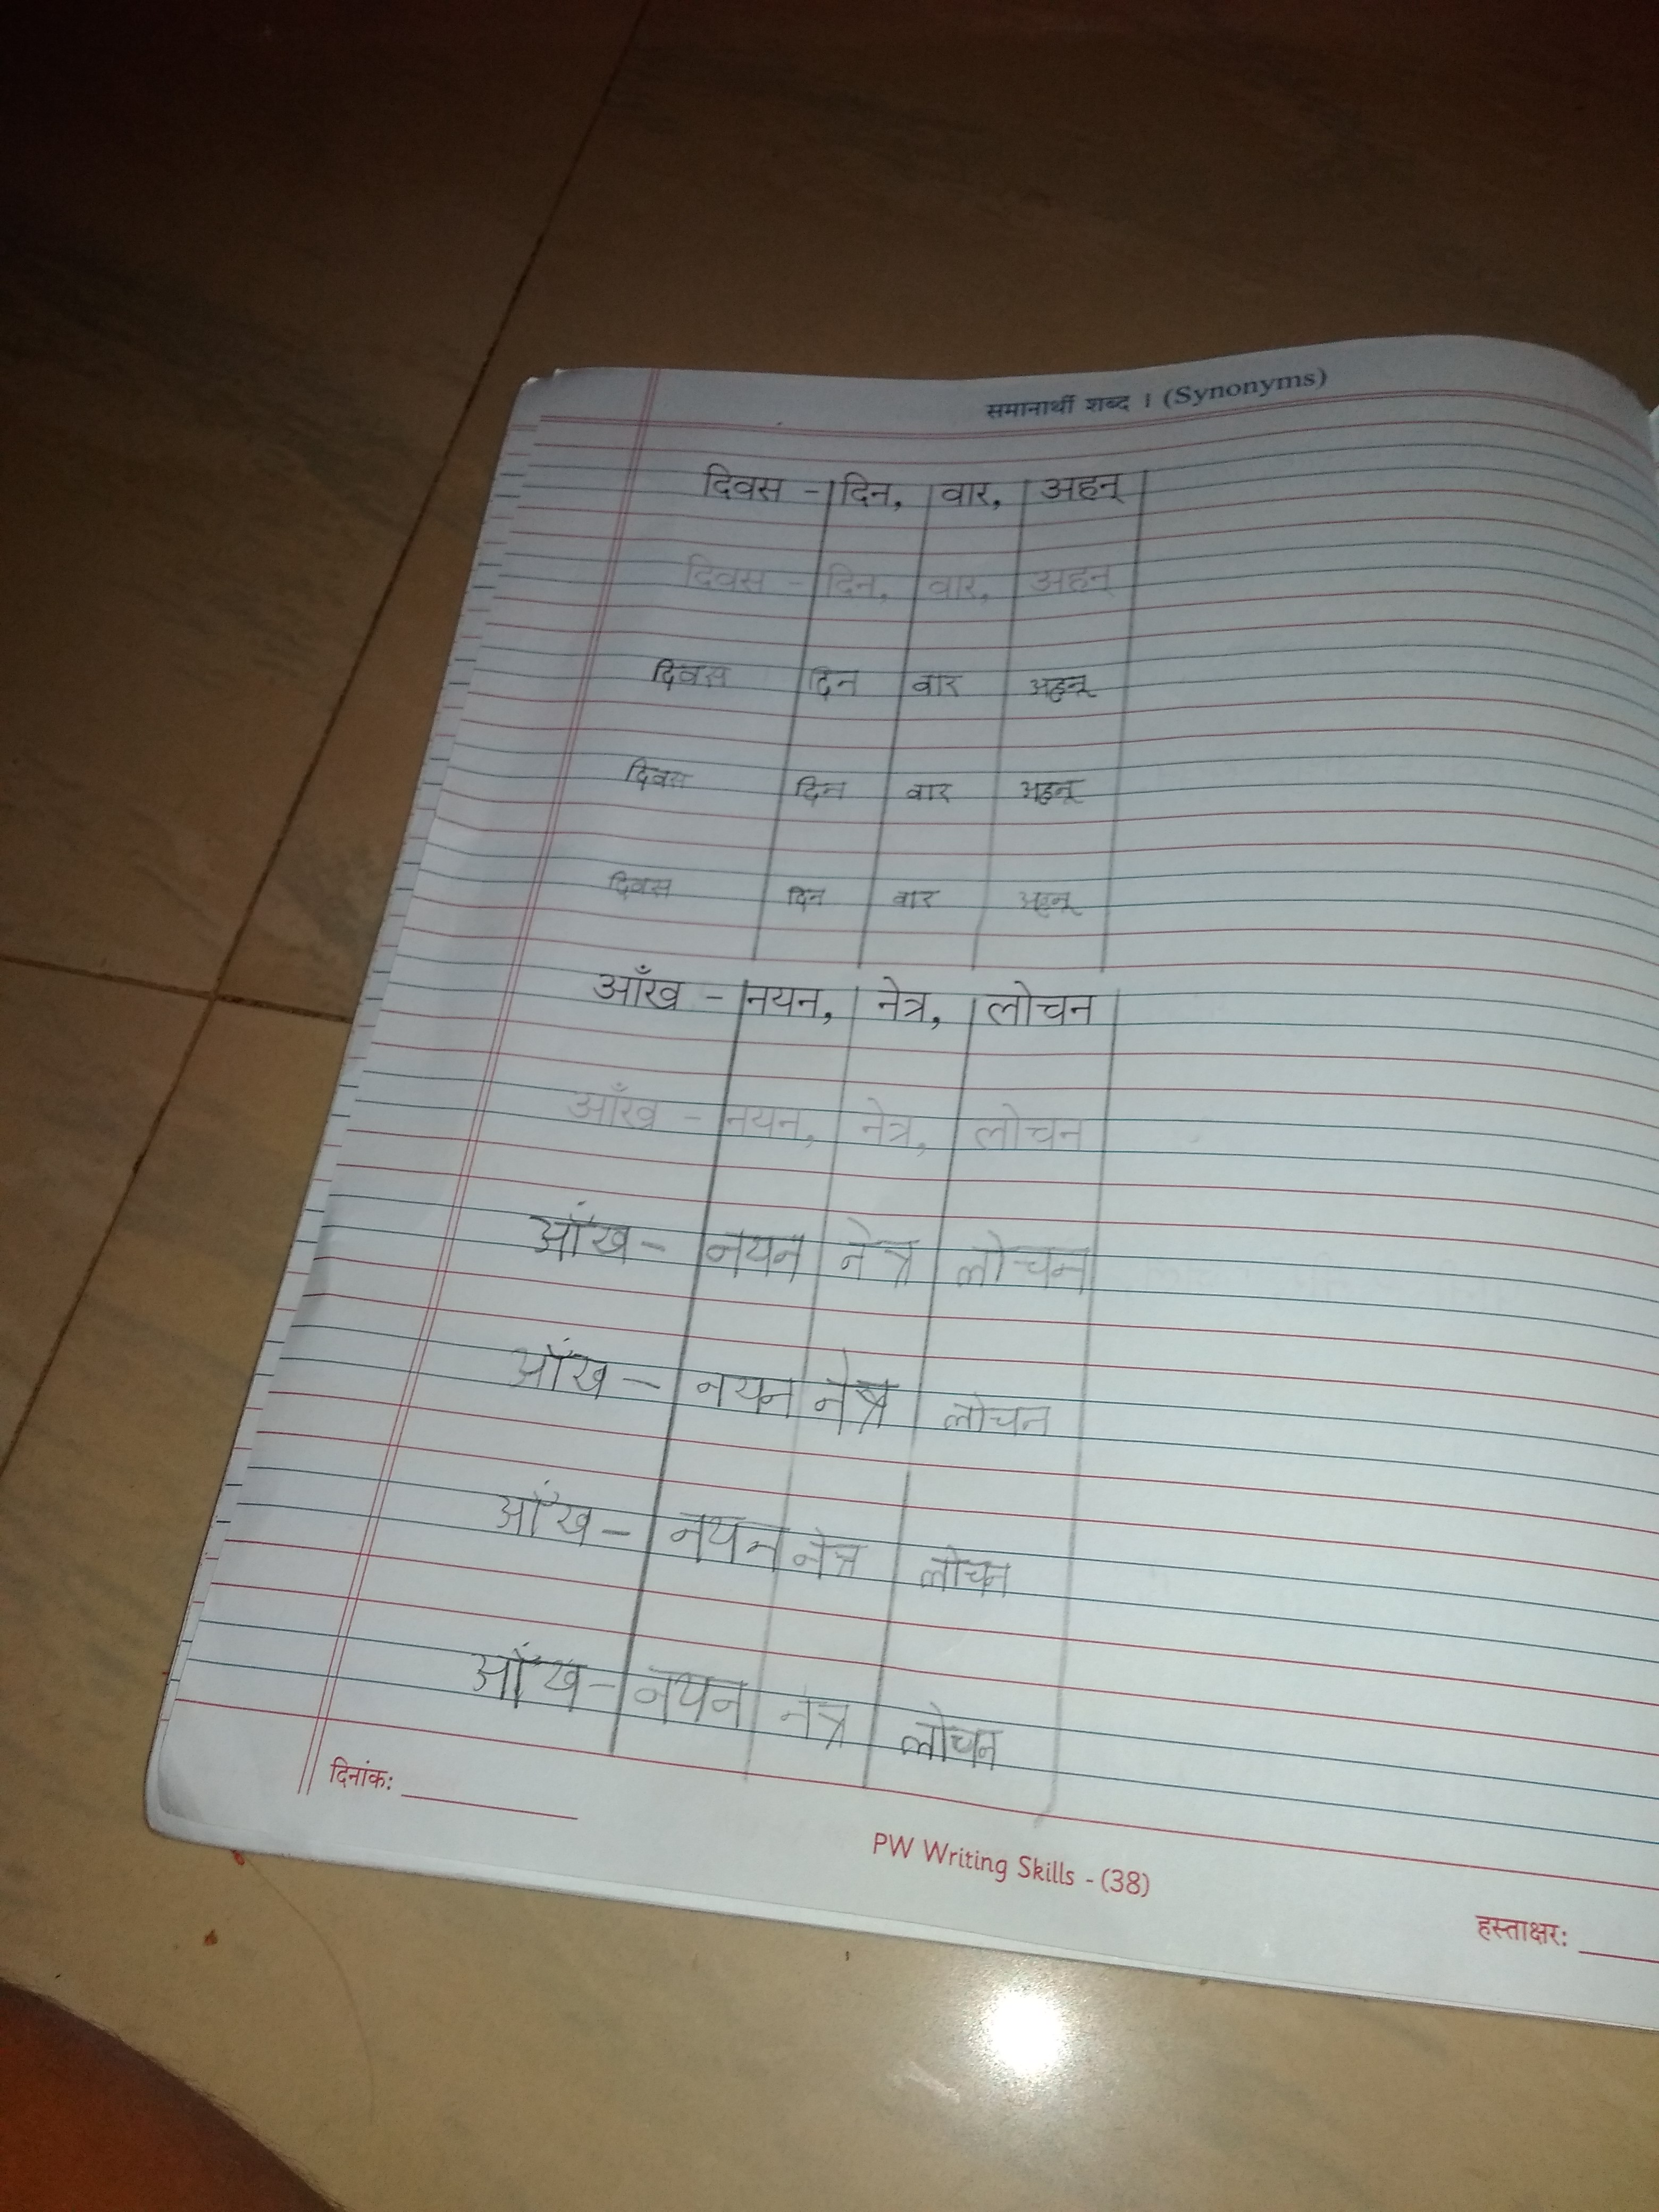 समानार्थी शब्द । (Synonyms)
दिवस - दिन, वार, अहन्
दिवस - दिन, वार, अहन्
दिवस दिन वार अहन्
दिवस दिन वार अहन्
दिवस दिन वार अहन्
आँख - नयन, नेत्र, लोचन
आँख - नयन, नेत्र, लोचन
आँख - नयन नेत्र लोचन
आँख - नयन नेत्र लोचन
आँख - नयन नेत्र लोचन
आँख - नयन नेत्र लोचन
दिनांक:
PW Writing Skills - (38)
हस्ताक्षर: